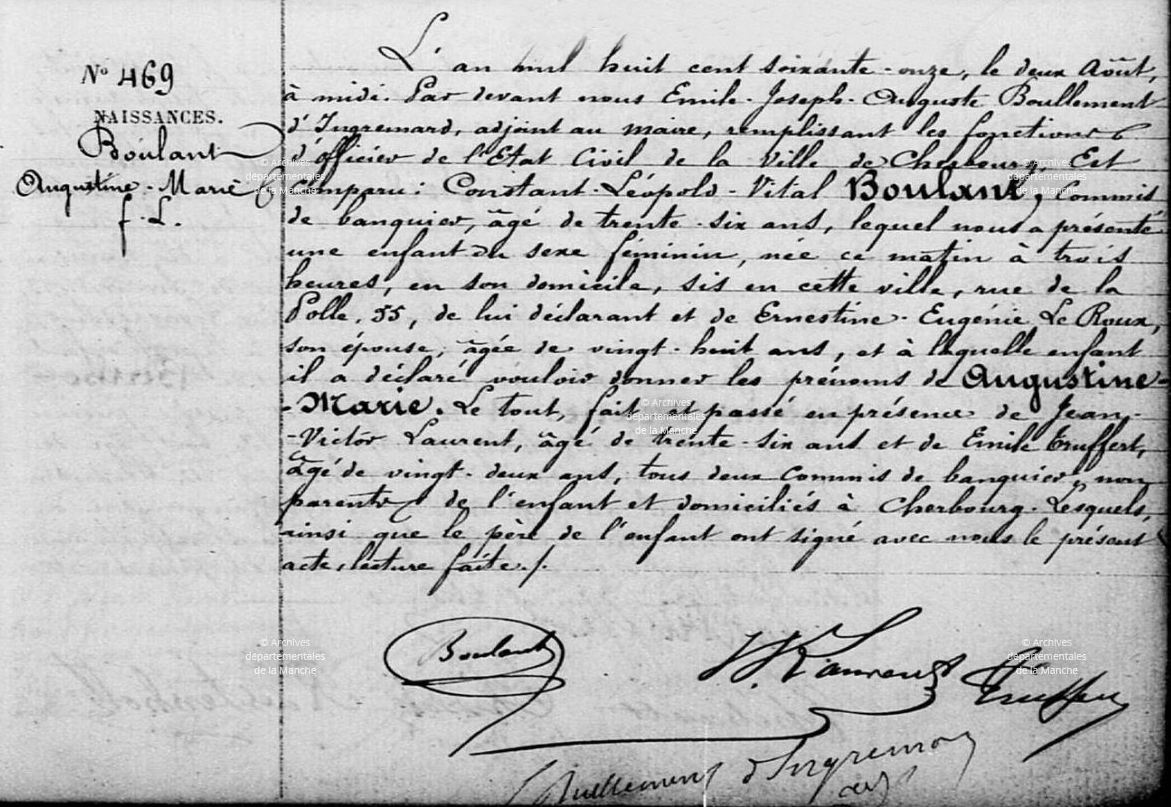 N° 469
NAISSANCES.
Boulant
Augustine-Marie
f. L.
L'an mil huit cent soixante-onze, le deux Août,
à midi. Par devant nous Emile-Joseph-Auguste Boullement
d'Ingremard, adjoint au maire, remplissant les fonctions
d'officier de l'Etat Civil de la ville de Cherbourg, Est
comparu: Constant-Léopold-Vital Boulant, commis
de banquier, âgé de trente-six ans, lequel nous a présenté
une enfant du sexe féminin, née ce matin à trois
heures, en son domicile, sis en cette ville, rue de la
Polle, 55, de lui déclarant et de Ernestine-Eugénie Le Roux,
son épouse, âgée de vingt-huit ans, et à laquelle enfant
il a déclaré vouloir donner les prénoms de Augustine-
-Marie. Le tout, fait et passé en présence de Jean-
-Victor Laurent, âgé de trente-six ans et de Emile Truffert,
âgé de vingt-deux ans, tous deux commis de banquier, non
parents de l'enfant et domiciliés à Cherbourg. Lesquels,
ainsi que le père de l'enfant ont signé avec nous le présent
acte, lecture faite./.
Boulant
V. Laurent
Truffert
Boullement d'Ingremard
adj
© Archives
départementales
de la Manche
© Archives
départementales
de la Manche
© Archives
départementales
de la Manche
© Archives
départementales
de la Manche
© Archives
départementales
de la Manche